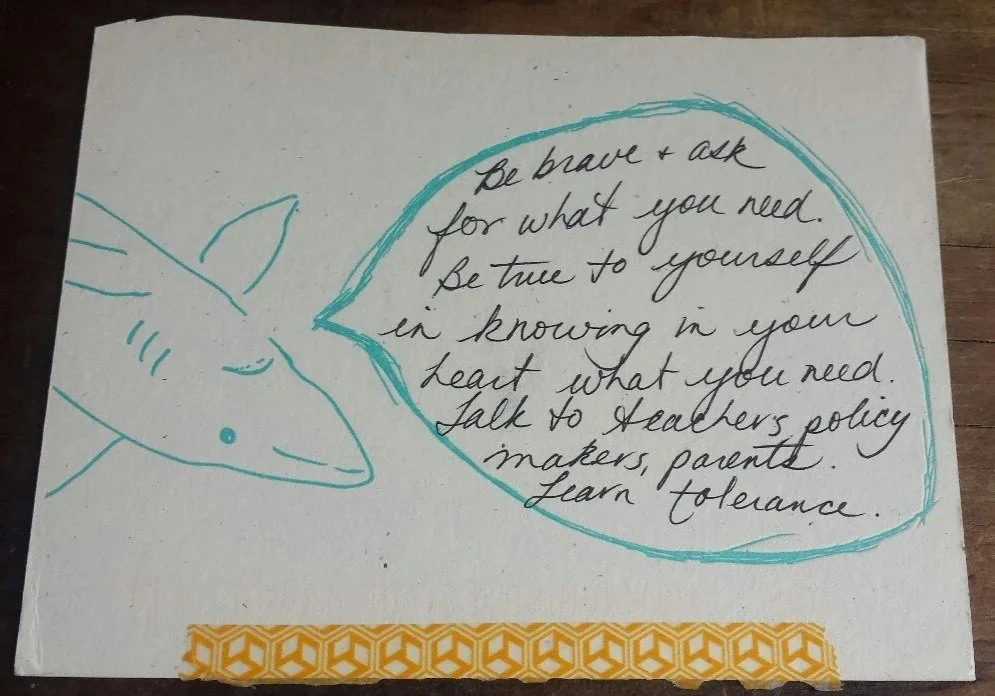 Be brave + ask
for what you need.
Be true to yourself
in knowing in your
heart what you need.
Talk to teachers, policy
makers, parents.
Learn tolerance.